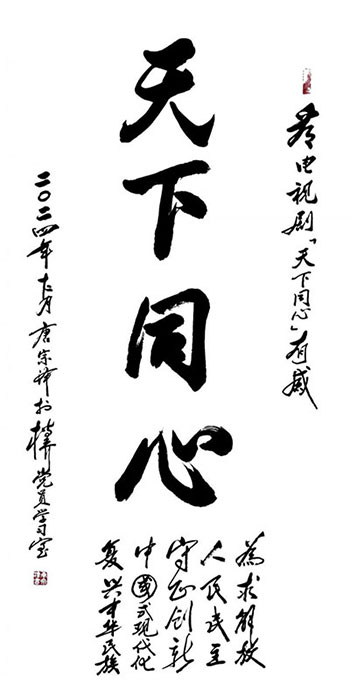 看电视剧「天下同心」有感
天下同心
為求解放
人民民主
守正创新
中國式现代化
复兴中华民族
二〇二四年 月唐宗 於 党員学习室